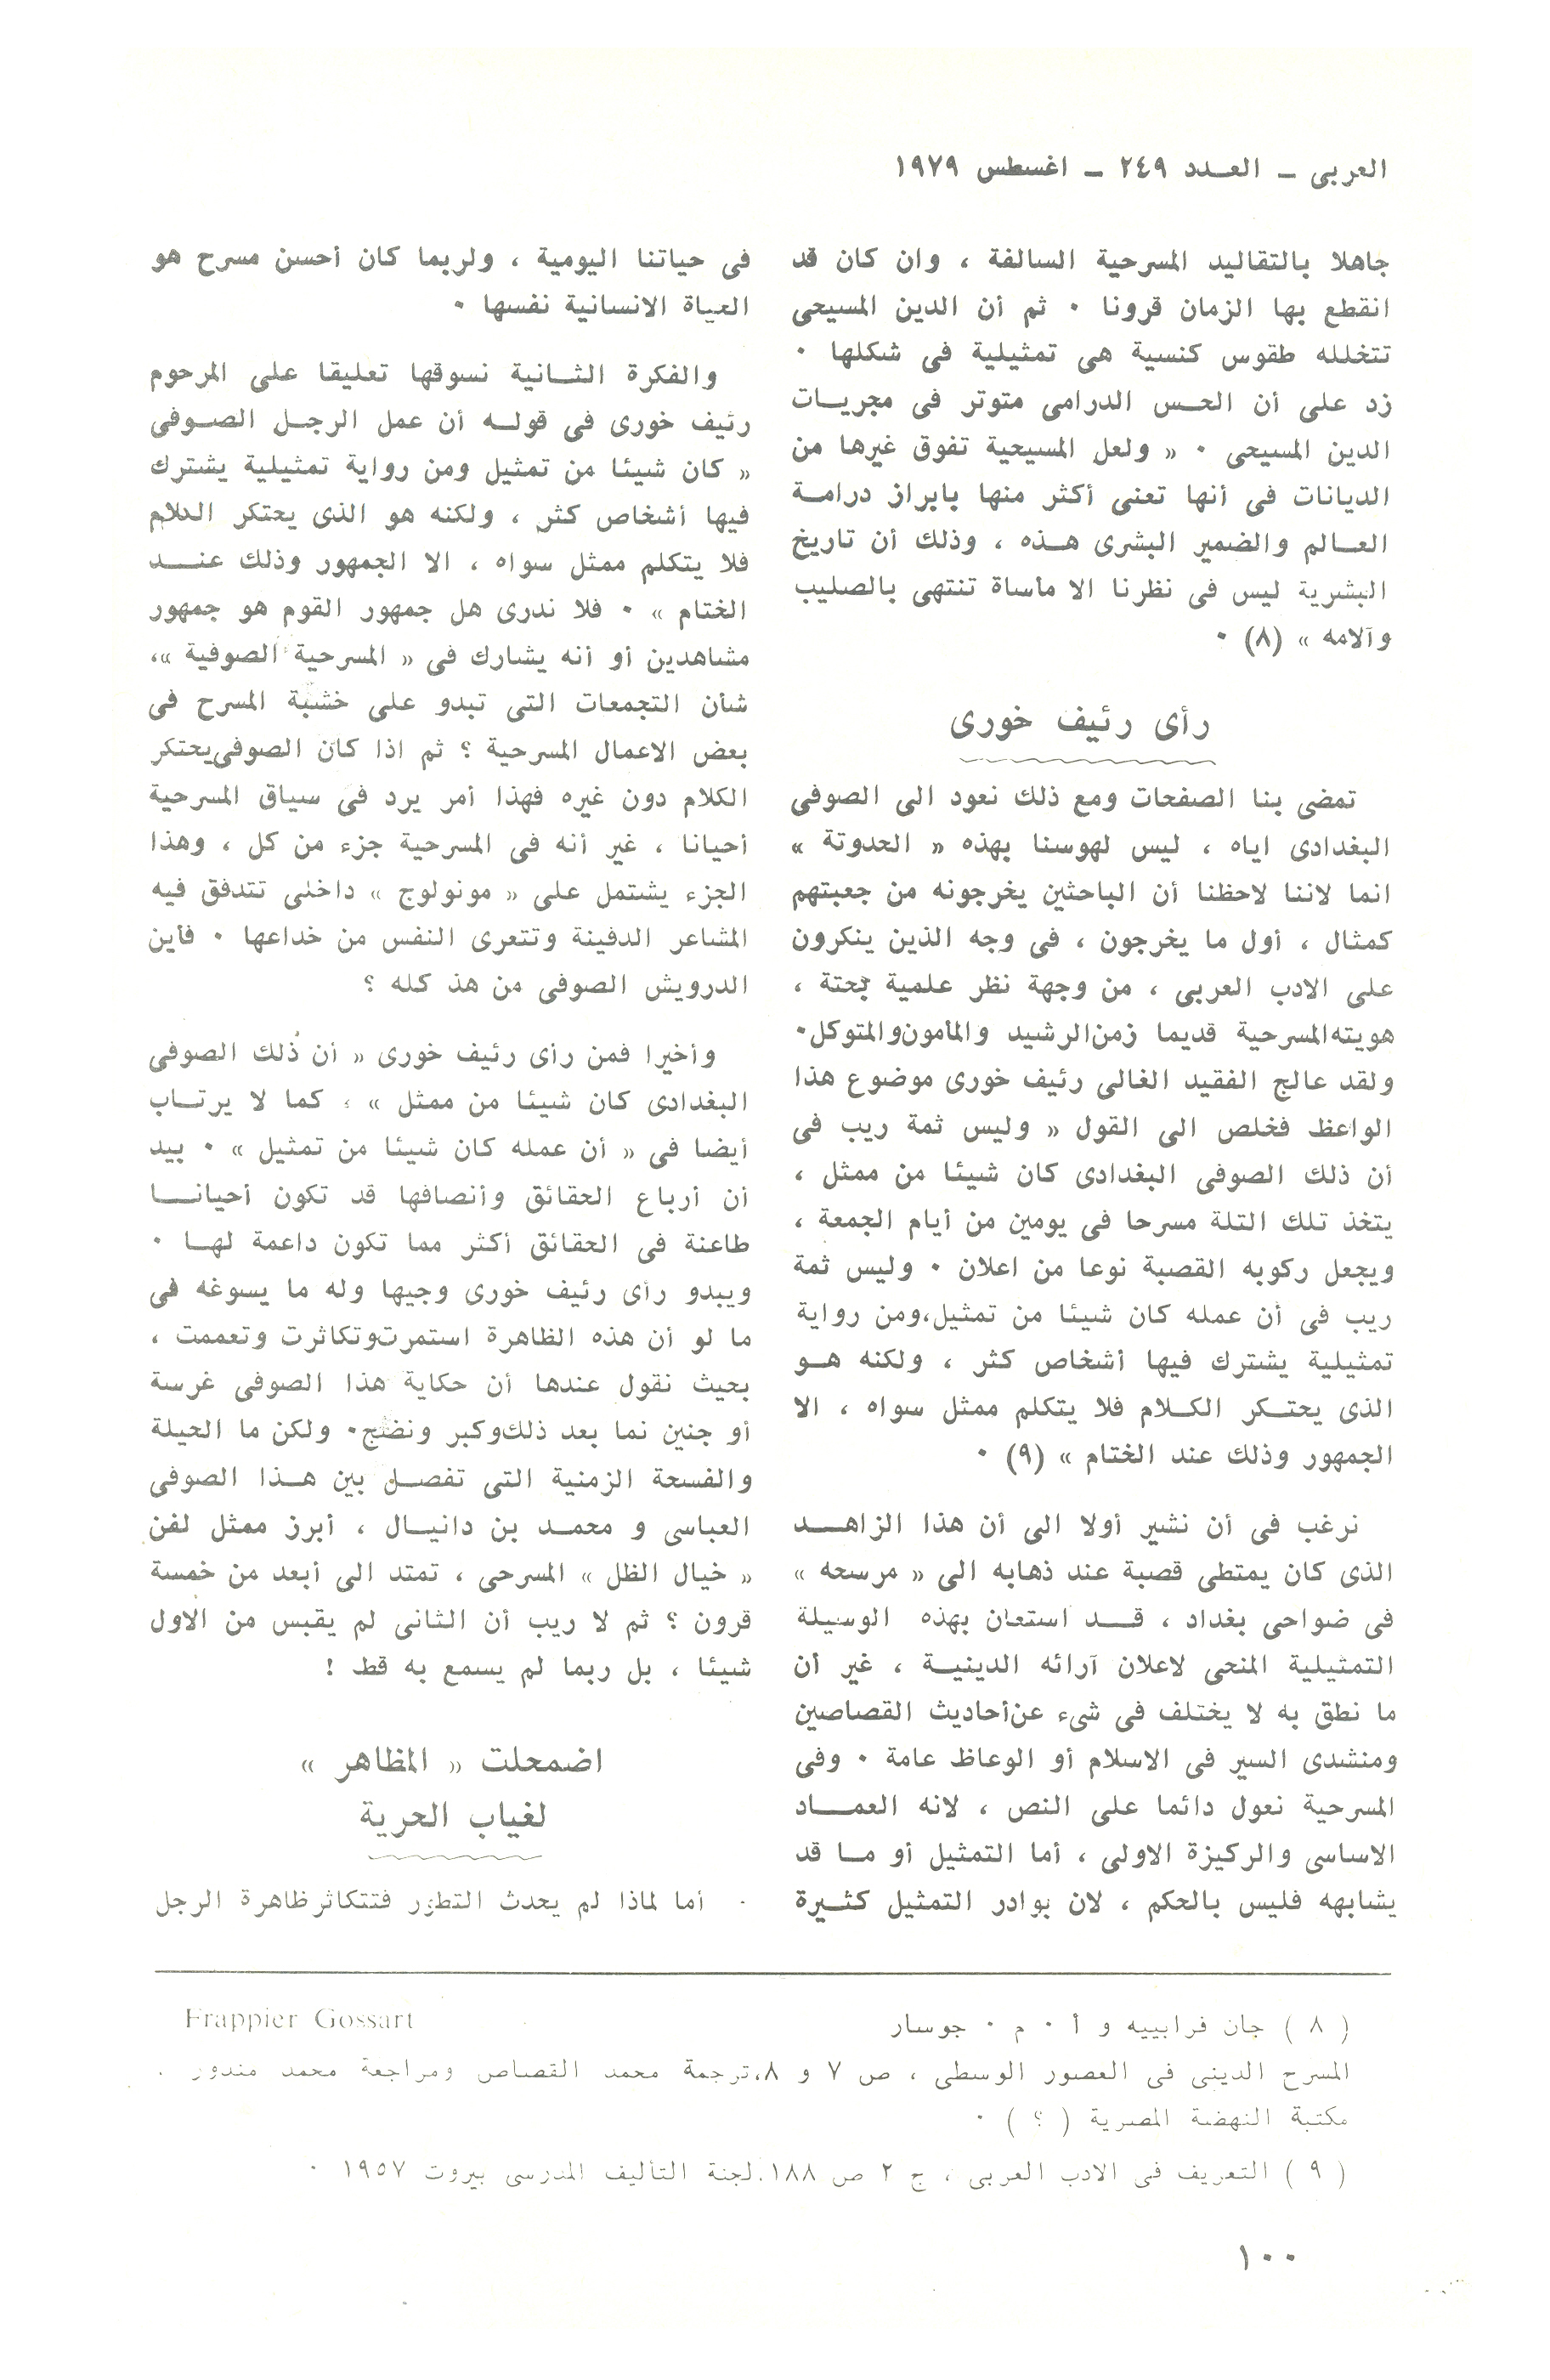 العربى – العـدد ٢٤٩ – اغسطس ١٩٧٩
جاهلا بالتقاليد المسرحية السالفة ، وان كان قد
انقطع بها الزمان قرونا ٠ ثم أن الدين المسيحى
تتخلله طقوس كنسية هى تمثيلية فى شكلها ٠
زد على أن الحـس الدرامى متوتر فى مجريـات
الدين المسيحى ٠ « ولعل المسيحية تفوق غيرها من
الديانات فى أنها تعنى أكثر منها بابراز درامـة
العـالم والضمير البشرى هـذه ، وذلك أن تاريخ
البشرية ليس فى نظرنا الا مأساة تنتهى بالصليب
وآلامه » (٨) ٠
رأى رئيف خورى
تمضى بنا الصفحات ومع ذلك نعود الى الصوفى
البغدادى اياه ، ليس لهوسنا بهذه « الحدوتة »
انما لاننا لاحظنا أن الباحثين يخرجونه من جعبتهم
كمثال ، أول ما يخرجون ، فى وجه الذين ينكرون
على الادب العربى ، من وجهة نظر علمية بحتة ،
هويته المسرحية قديما زمن الرشيد والمأمون والمتوكل٠
ولقد عالج الفقيد الغالى رئيف خورى موضوع هذا
الواعظ فخلص الى القول « وليس ثمة ريب فى
أن ذلك الصوفى البغدادى كان شيئا من ممثل ،
يتخذ تلك التلة مسرحا فى يومين من أيام الجمعة ،
ويجعل ركوبه القصبة نوعا من اعلان ٠ وليس ثمة
ريب فى أن عمله كان شيئا من تمثيل،ومن رواية
تمثيلية يشترك فيها أشخاص كثر ، ولكنه هـو
الذى يحتـكر الكـلام فلا يتكلم ممثل سواه ، الا
الجمهور وذلك عند الختام » (٩) ٠
نرغب فى أن نشير أولا الى أن هذا الزاهـد
الذى كان يمتطى قصبة عند ذهابه الى « مرسحه »
فى ضواحى بغداد ، قـد استعان بهذه الوسيلة
التمثيلية المنحى لاعلان آرائه الدينيـة ، غير أن
ما نطق به لا يختلف فى شىء عن أحاديث القصاصين
ومنشدى السير فى الاسلام أو الوعاظ عامة ٠ وفى
المسرحية نعول دائما على النص ، لانه العمـاد
الاساسى والركيزة الاولى ، أما التمثيل أو مـا قد
يشابهه فليس بالحكم ، لان بوادر التمثيل كثـيرة
فى حياتنا اليومية ، ولربما كان أحسن مسرح هو
الحياة الانسانية نفسها ٠
والفكرة الثـانية نسوقها تعليقا على المرحوم
رئيف خورى فى قولـه أن عمل الرجـل الصـوفى
« كان شيئا من تمثيل ومن رواية تمثيلية يشترك
فيها أشخاص كثر ، ولكنه هو الذى يحتكر الكلام
فلا يتكلم ممثل سواه ، الا الجمهور وذلك عنـد
الختام » ٠ فلا ندرى هل جمهور القوم هو جمهور
مشاهدين أو أنه يشارك فى « المسرحية الصوفية »،
شأن التجمعات التى تبدو على خشبة المسرح فى
بعض الاعمال المسرحية ؟ ثم اذا كان الصوفى يحتكر
الكلام دون غيره فهذا أمر يرد فى سياق المسرحية
أحيانا ، غير أنه فى المسرحية جزء من كل ، وهذا
الجزء يشتمل على « مونولوج » داخلى تتدفق فيه
المشاعر الدفينة وتتعرى النفس من خداعها ٠ فأين
الدرويش الصوفى من هذ كله ؟
وأخيرا فمن رأى رئيف خورى « أن ذلك الصوفى
البغدادى كان شيئا من ممثل » ، كما لا يرتـاب
أيضا فى « أن عمله كان شيئا من تمثيل » ٠ بيد
أن أرباع الحقائق وأنصافها قد تكون أحيانـا
طاعنة فى الحقائق أكثر مما تكون داعمة لهـا ٠
ويبدو رأى رئيف خورى وجيها وله ما يسوغه فى
ما لو أن هذه الظاهرة استمرت وتكاثرت وتعممت ،
بحيث نقول عندها أن حكاية هذا الصوفى غرسة
أو جنين نما بعد ذلك وكبر ونضج٠ ولكن ما الحيلة
والفسحة الزمنية التى تفصـل بين هـذا الصوفى
العباسى و محمـد بن دانيـال ، أبرز ممثل لفن
« خيال الظل » المسرحى ، تمتد الى أبعد من خمسة
قرون ؟ ثم لا ريب أن الثانى لم يقبس من الاول
شيئا ، بل ربما لم يسمع به قط !
اضمحلت « المظاهر »
لغياب الحرية
أما لماذا لم يحدث التطور فتتكاثر ظاهرة الرجل
( ٨ ) جان فرابييه و أ ٠ م ٠ جوسار Frappier Gossart
المسرح الدينى فى العصور الوسطى ، ص ٧ و ٨،ترجمة محمد القصاص ومراجعة محمد مندور .
مكتبة النهضة المصرية ( ؟ ) ٠
( ٩ ) التعريف فى الادب العربى ، ج ٢ ص ١٨٨.لجنة التأليف المدرسى بيروت ١٩٥٧ ٠
١٠٠